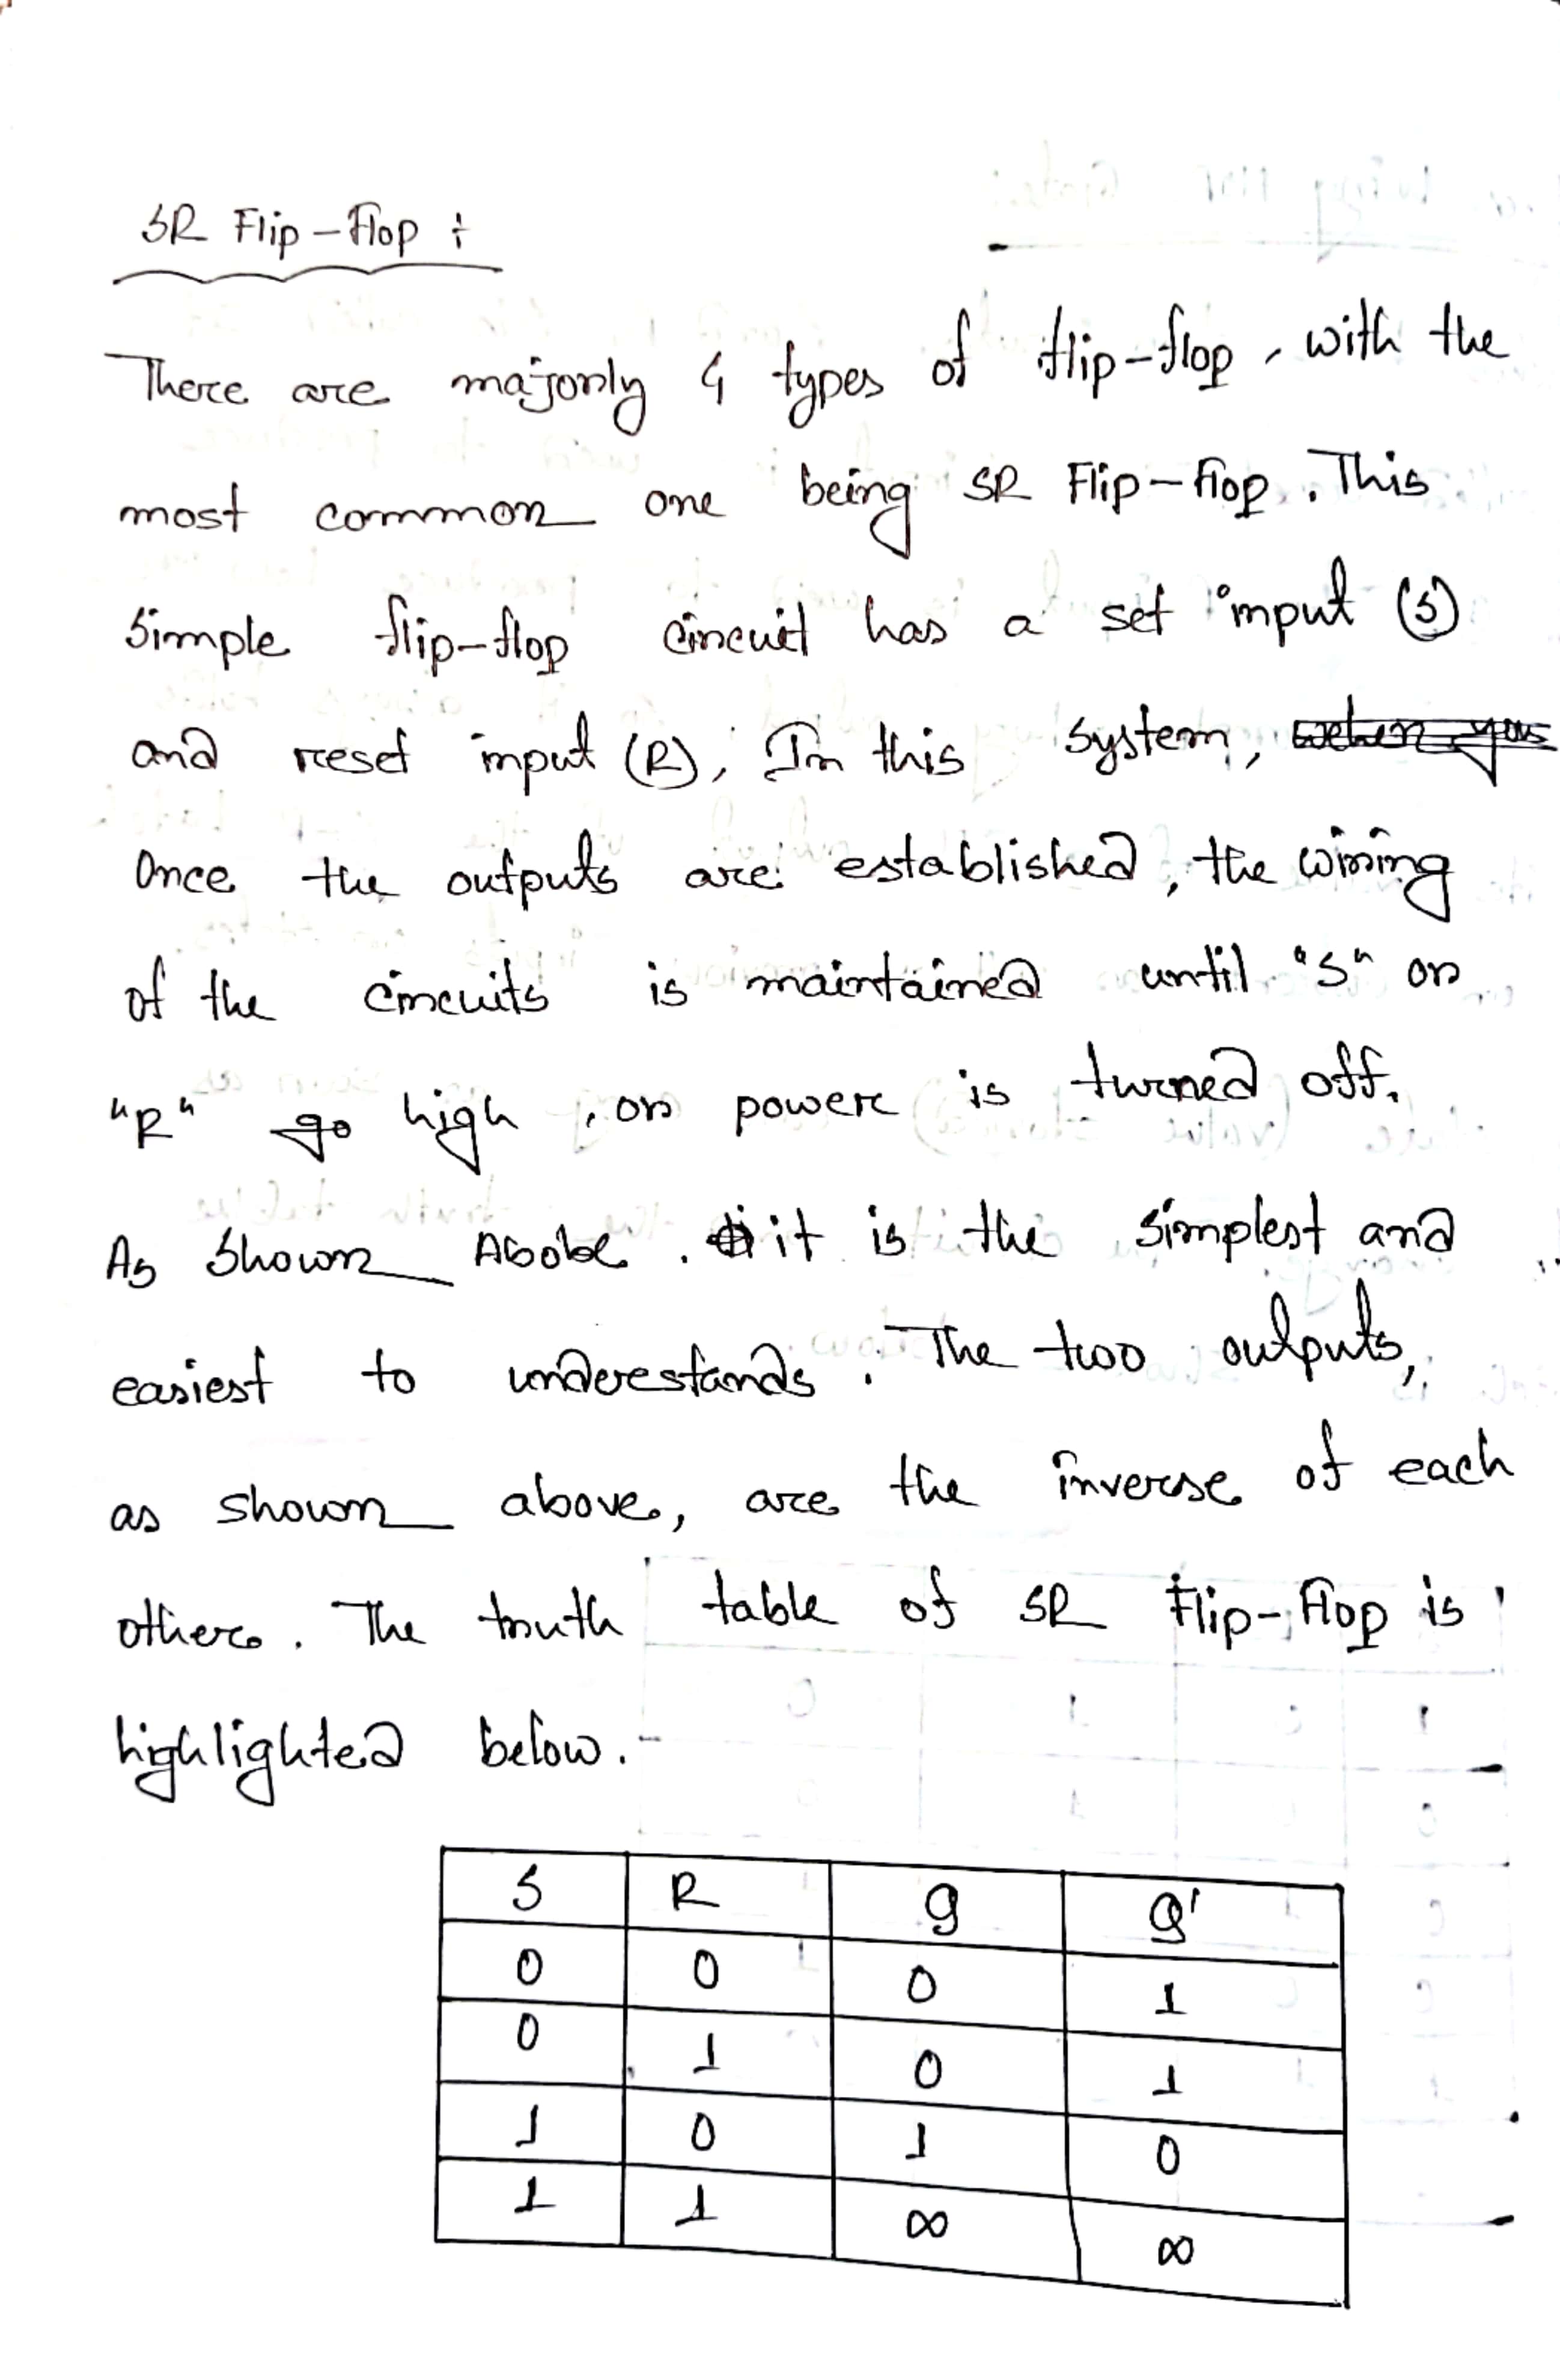 SR Flip-Flop :
There are majorly 4 types of flip-flop, with the
most common one being SR Flip-flop. This
Simple flip-flop circuit has a set input (S)
and reset input (R), In this System,
Once the outputs are established, the wiring
of the circuits is maintained until "S" or
"R" go high, or power is turned off.
As Shown Abobe. it is the simplest and
easiest to understands. The two outputs,
as shown above, are the inverse of each
others. The truth table of SR Flip-Flop is
highlighted below.
S R Q Q'
0 0 0 1
0 1 0 1
1 0 1 0
1 1 ∞ ∞